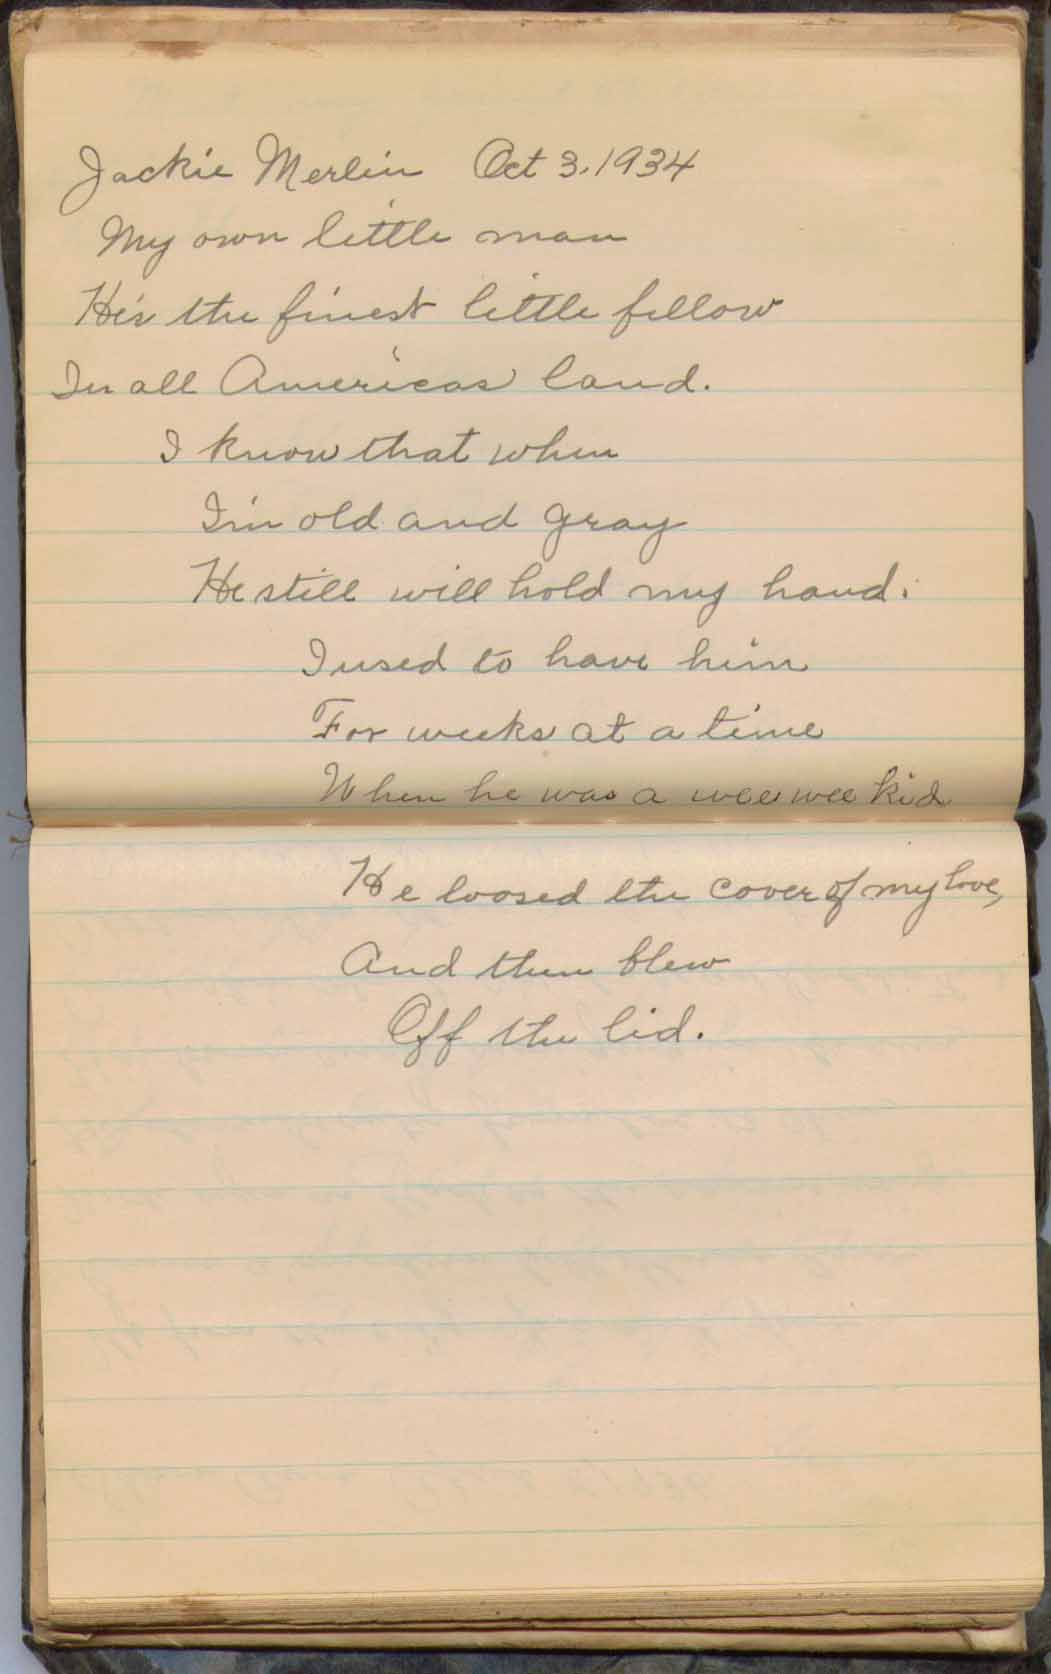 Jackie Merlin Oct 3, 1934
My own little man
He's the finest little fellow
In all Americas land.
I know that when
I'm old and gray
He still will hold my hand.
I used to have him
For weeks at a time
When he was a wee wee kid
He loosed the cover of my love,
And then blew
Off the lid.